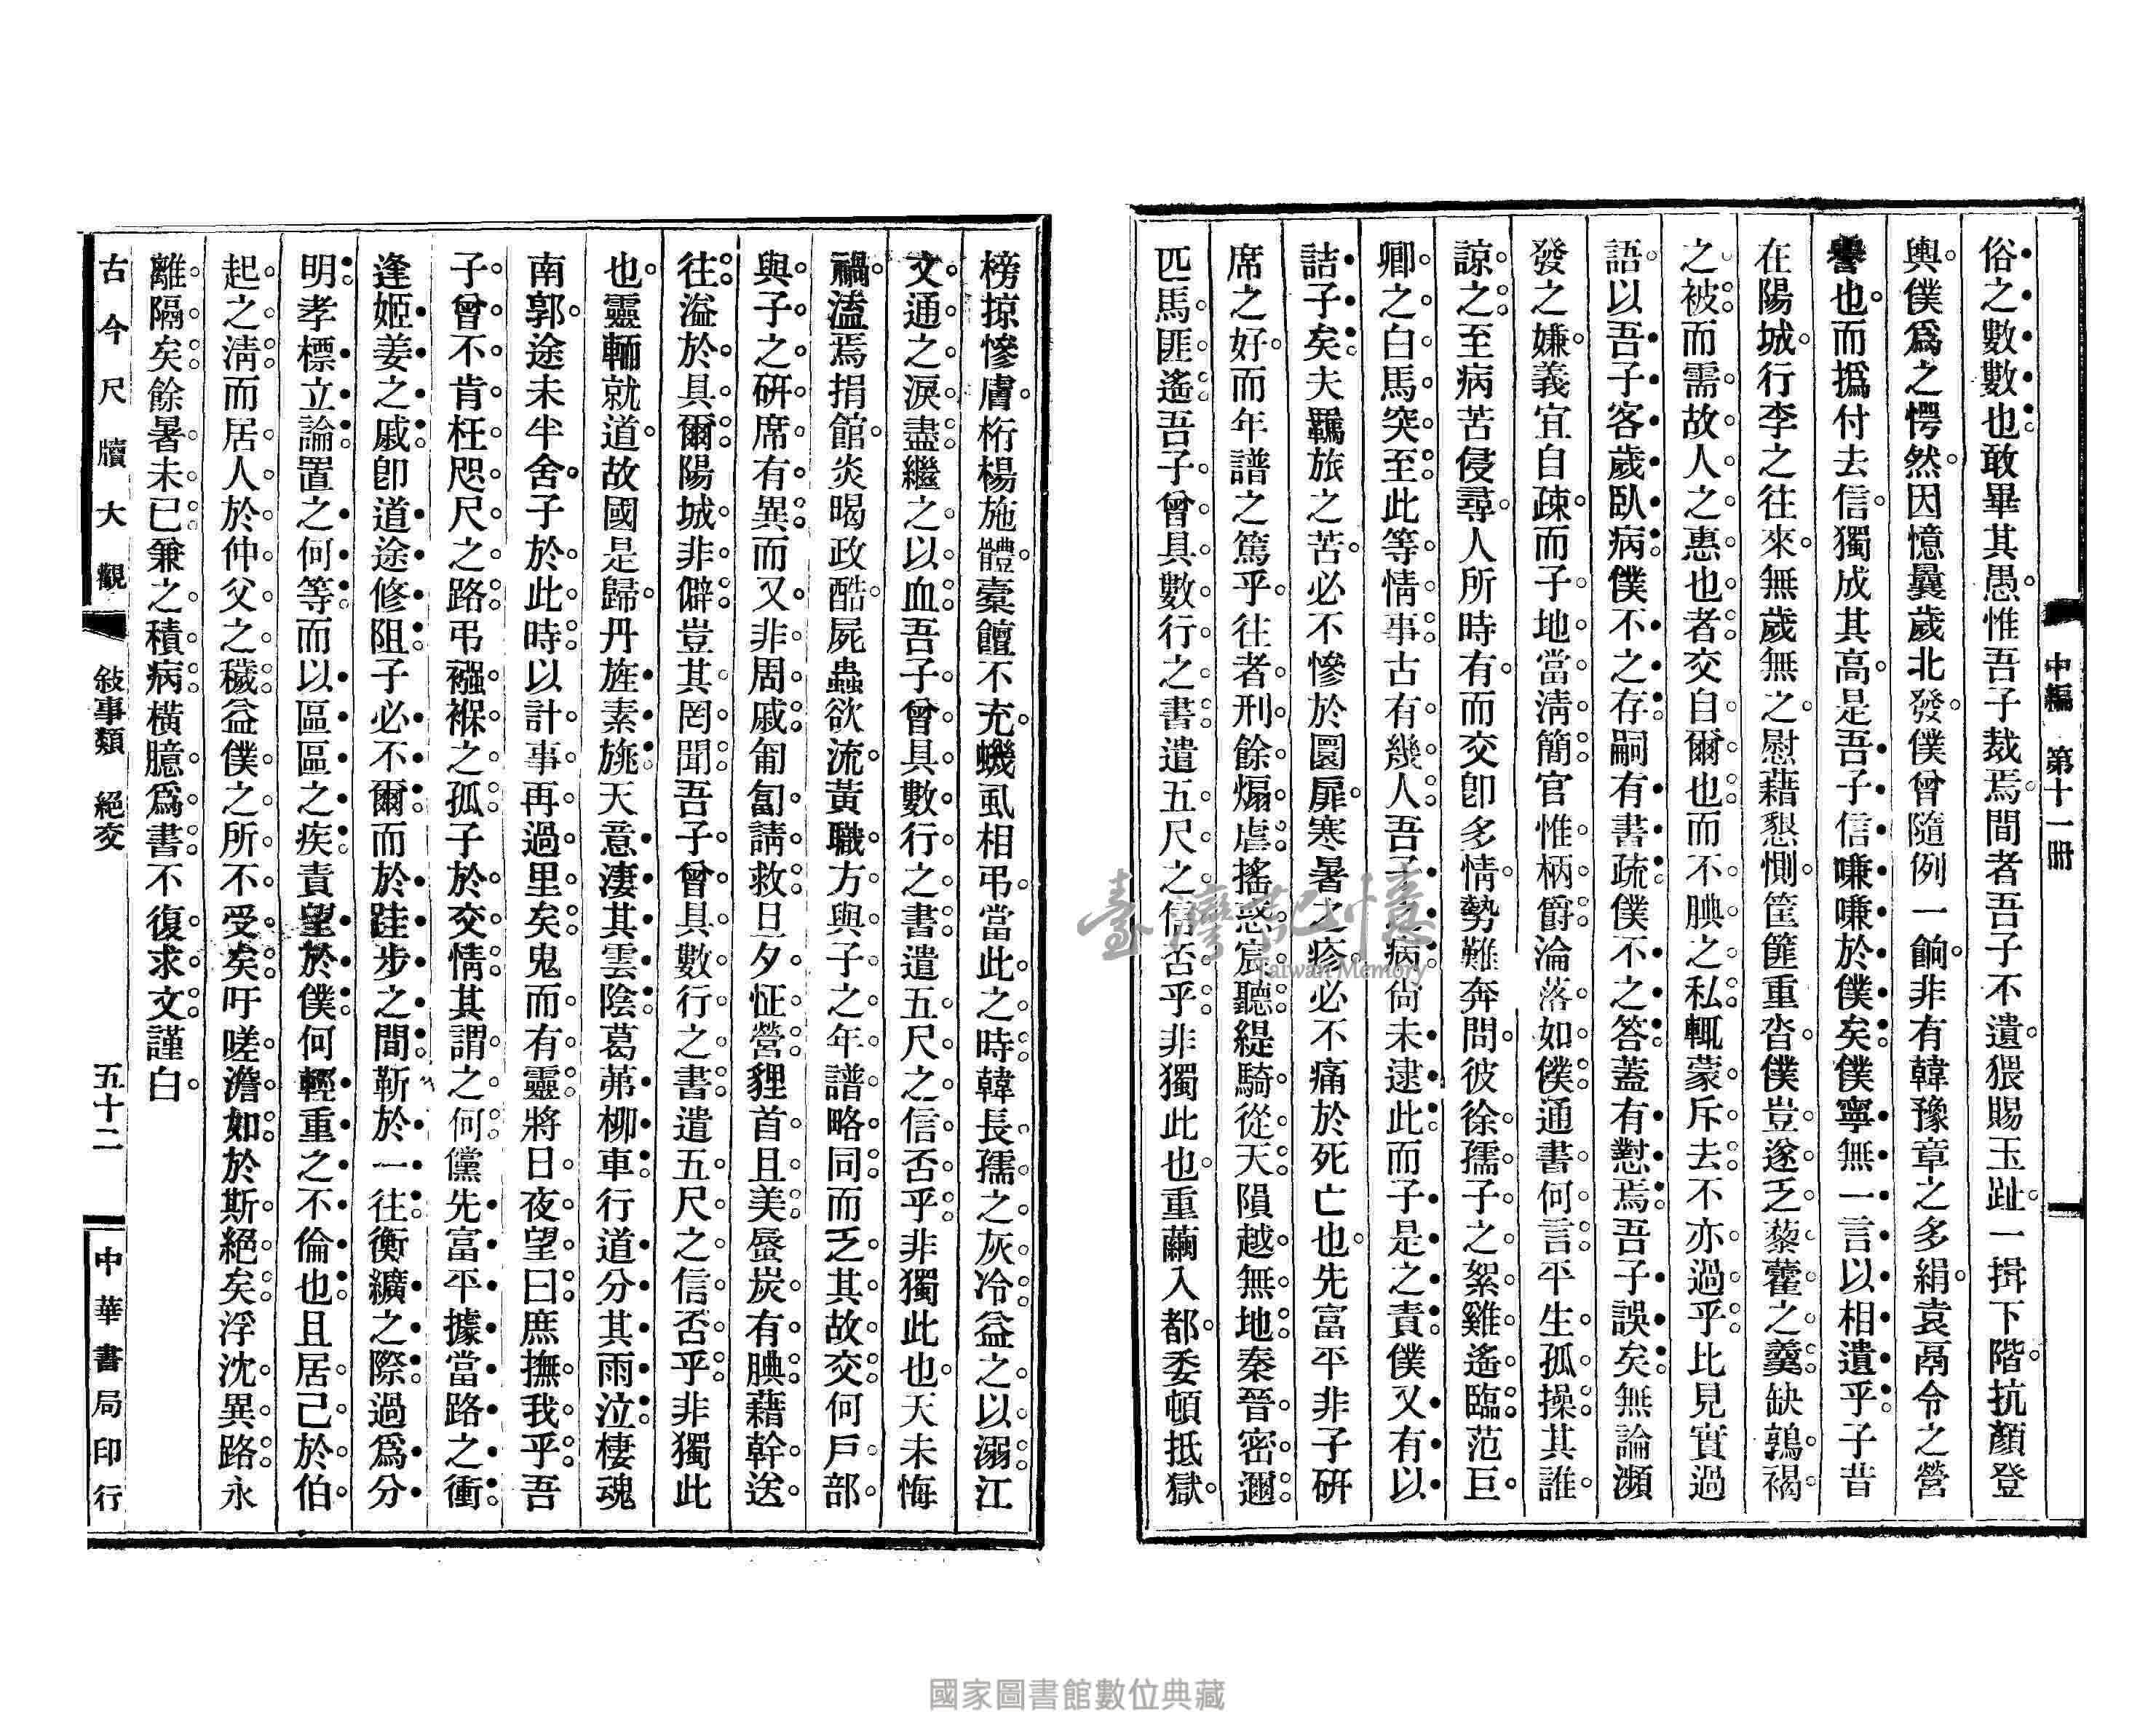 中編 第十一冊
俗之數數數也敢畢其愚惟吾子裁焉間者吾子不遺猥賜玉趾一揖下階抗顏登
輿僕爲之愕然因憶曩歲北發僕曾隨例一餉非有韓豫章之多絹袁鬲令之營
譽也而撝付去信獨成其高是吾子信嗛嗛於僕矣僕寧無一言以相遺乎子昔
在陽城行李之往來無歲無之慰藉懇惻筐篚重沓僕豈遂乏藜藿之羹缺鶉褐
之被而需故人之惠也者交自爾也而不腆之私輒蒙斥去不亦過乎比見實過
語以吾子客歲臥病僕不之存嗣有書疏僕不之答蓋有懟焉吾子誤矣無論瀕
發之嫌義宜自疎而子地當淸簡官惟柄爵淪落如僕通書何言平生孤操其誰
諒之至病苦侵尋人所時有而交卽多情勢難奔問彼徐孺子之絮雞遙臨范巨
卿之白馬突至此等情事古有幾人吾子之病尙未逮此而子是之責僕又有以
詰子矣夫羈旅之苦必不慘於圜扉寒暑之疹必不痛於死亡也先富平非子硏
席之好而年譜之篤乎往者刑餘煽虐搖惑宸聽緹騎從天隕越無地秦晉密邇
匹馬匪遙吾子曾具數行之書遣五尺之信否乎非獨此也重繭入都委頓抵獄
榜掠慘膚桁楊施體橐饘不充蟣虱相弔當此之時韓長孺之灰冷益之以溺江
文通之淚盡繼之以血吾子曾具數行之書遣五尺之信否乎非獨此也天未悔
禍溘焉捐館炎暍政酷屍蟲欲流黃職方與子之年譜略同而乏其故交何戶部
與子之硏席有異而又非周戚匍匐請救旦夕怔營貍首且美蜃炭有腆藉幹送
往溢於具爾陽城非僻豈其罔聞吾子曾具數行之書遣五尺之信否乎非獨此
也靈輀就道故國是歸丹旌素旐天意淒其雲陰葛茀柳車行道分其雨泣棲魂
南郭途未半舍子於此時以計事再過里矣鬼而有靈將日夜望曰庶撫我乎吾
子曾不肯枉咫尺之路弔襁褓之孤子於交情其謂之何儻先富平據當路之衝
逢姬姜之戚卽道途修阻子必不爾而於跬步之間靳於一往衡纊之際過爲分
明孝標立論置之何等而以區區之疾責望於僕何輕重之不倫也且居己於伯
起之淸而居人於仲父之穢益僕之所不受矣吁嗟澹如於斯絕矣浮沈異路永
離隔矣餘暑未已兼之積病橫臆爲書不復求文謹白
古今尺牘大觀 敍事類 絕交 五十二 中華書局印行
臺灣記憶
Taiwan Memory
國家圖書館數位典藏